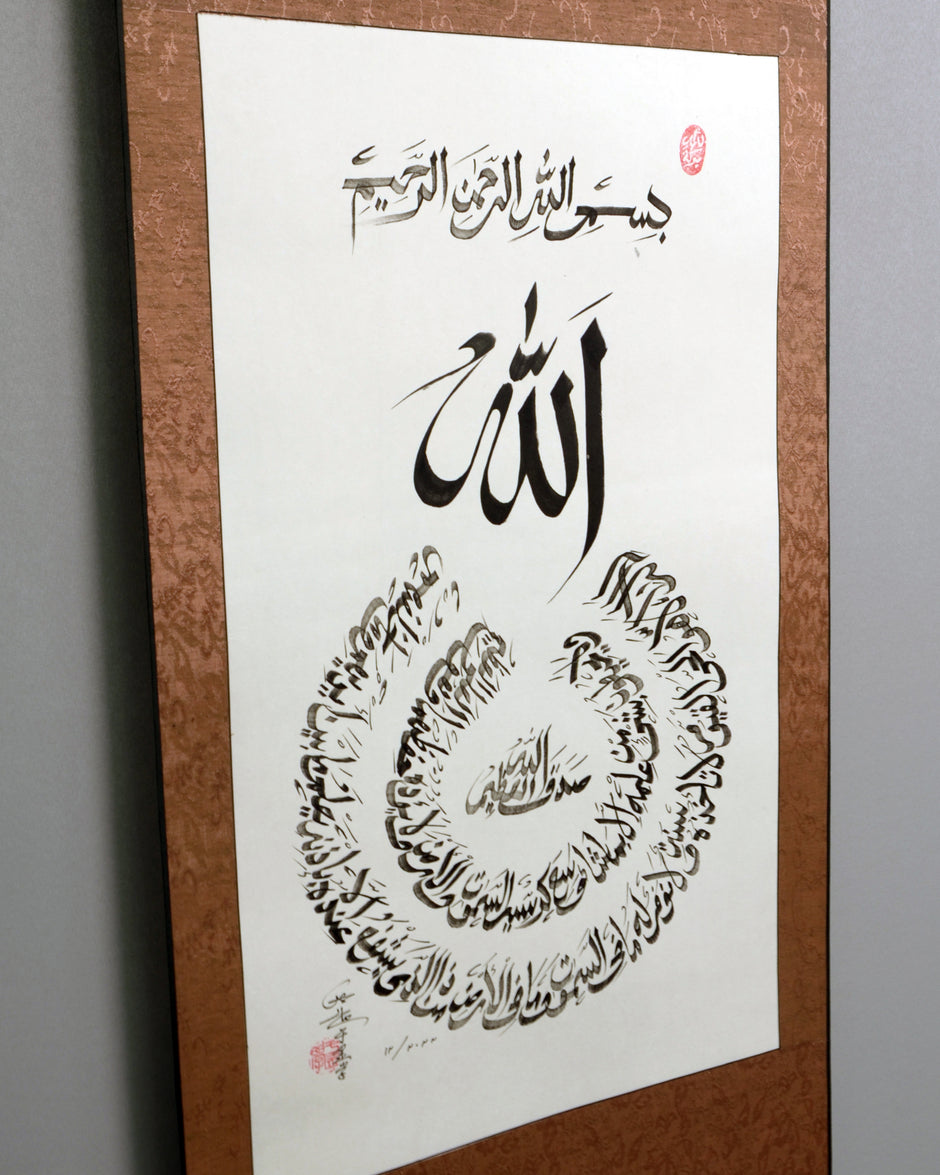 بِسْمِ اللهِ الرَّحْمٰنِ الرَّحِيْمِ
اللّٰه
لا إله إلا هو الحي القيوم لا تأخذه سنة ولا نوم له ما في السموت وما في الأرض من ذا الذي يشفع عنده إلا بإذنه يعلم ما بين أيديهم وما خلفهم
ولا يحيطون بشيء من علمه إلا بما شاء وسع كرسيه السموت والأرض ولا يؤده حفظهما وهو العلي العظيم
صدق الله العظيم
١٢/٢٠٢٢